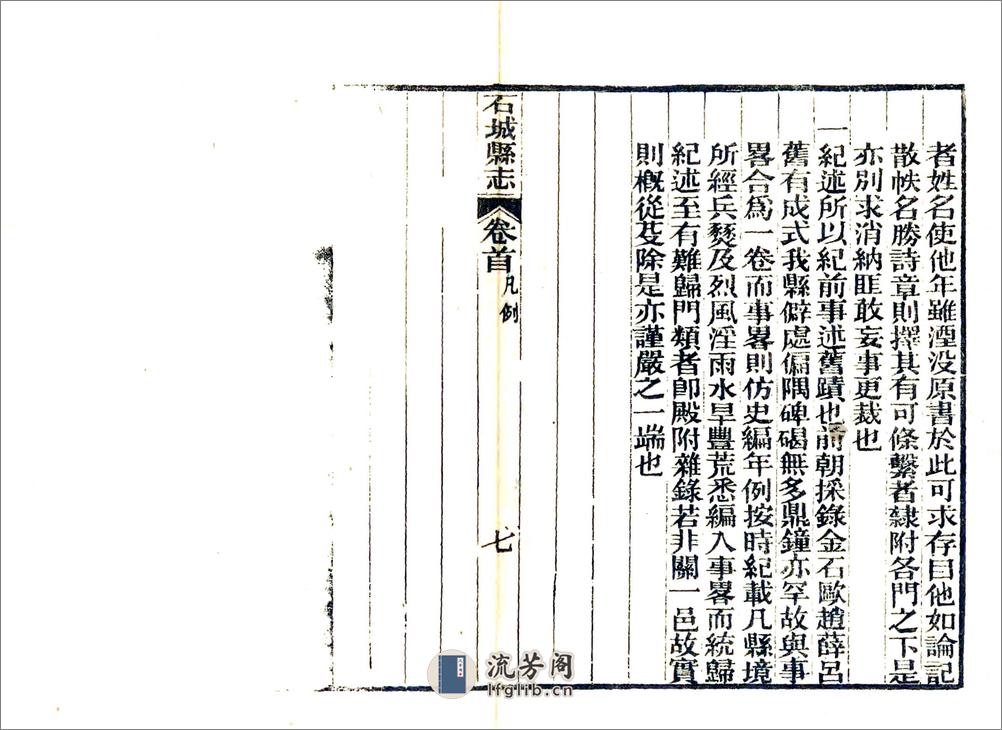 者姓名使他年雖湮没原書於此可求存目他如論記
散帙名勝詩章則擇其有可條繫者隸附各門之下是
亦別求消納匪敢妄事更裁也
一紀述所以紀前事述舊蹟也前朝採錄金石歐趙薛呂
舊有成式我縣僻處偏隅碑碣無多鼎鐘亦罕故與事
畧合爲一卷而事畧則仿史編年例按時紀載凡縣境
所經兵燹及烈風淫雨水旱豐荒悉編入事畧而統歸
紀述至有難歸門類者卽殿附雜錄若非關一邑故實
則概從芟除是亦謹嚴之一端也
石城縣志 卷首 凡例 七
流芳阁
lfglib.cn